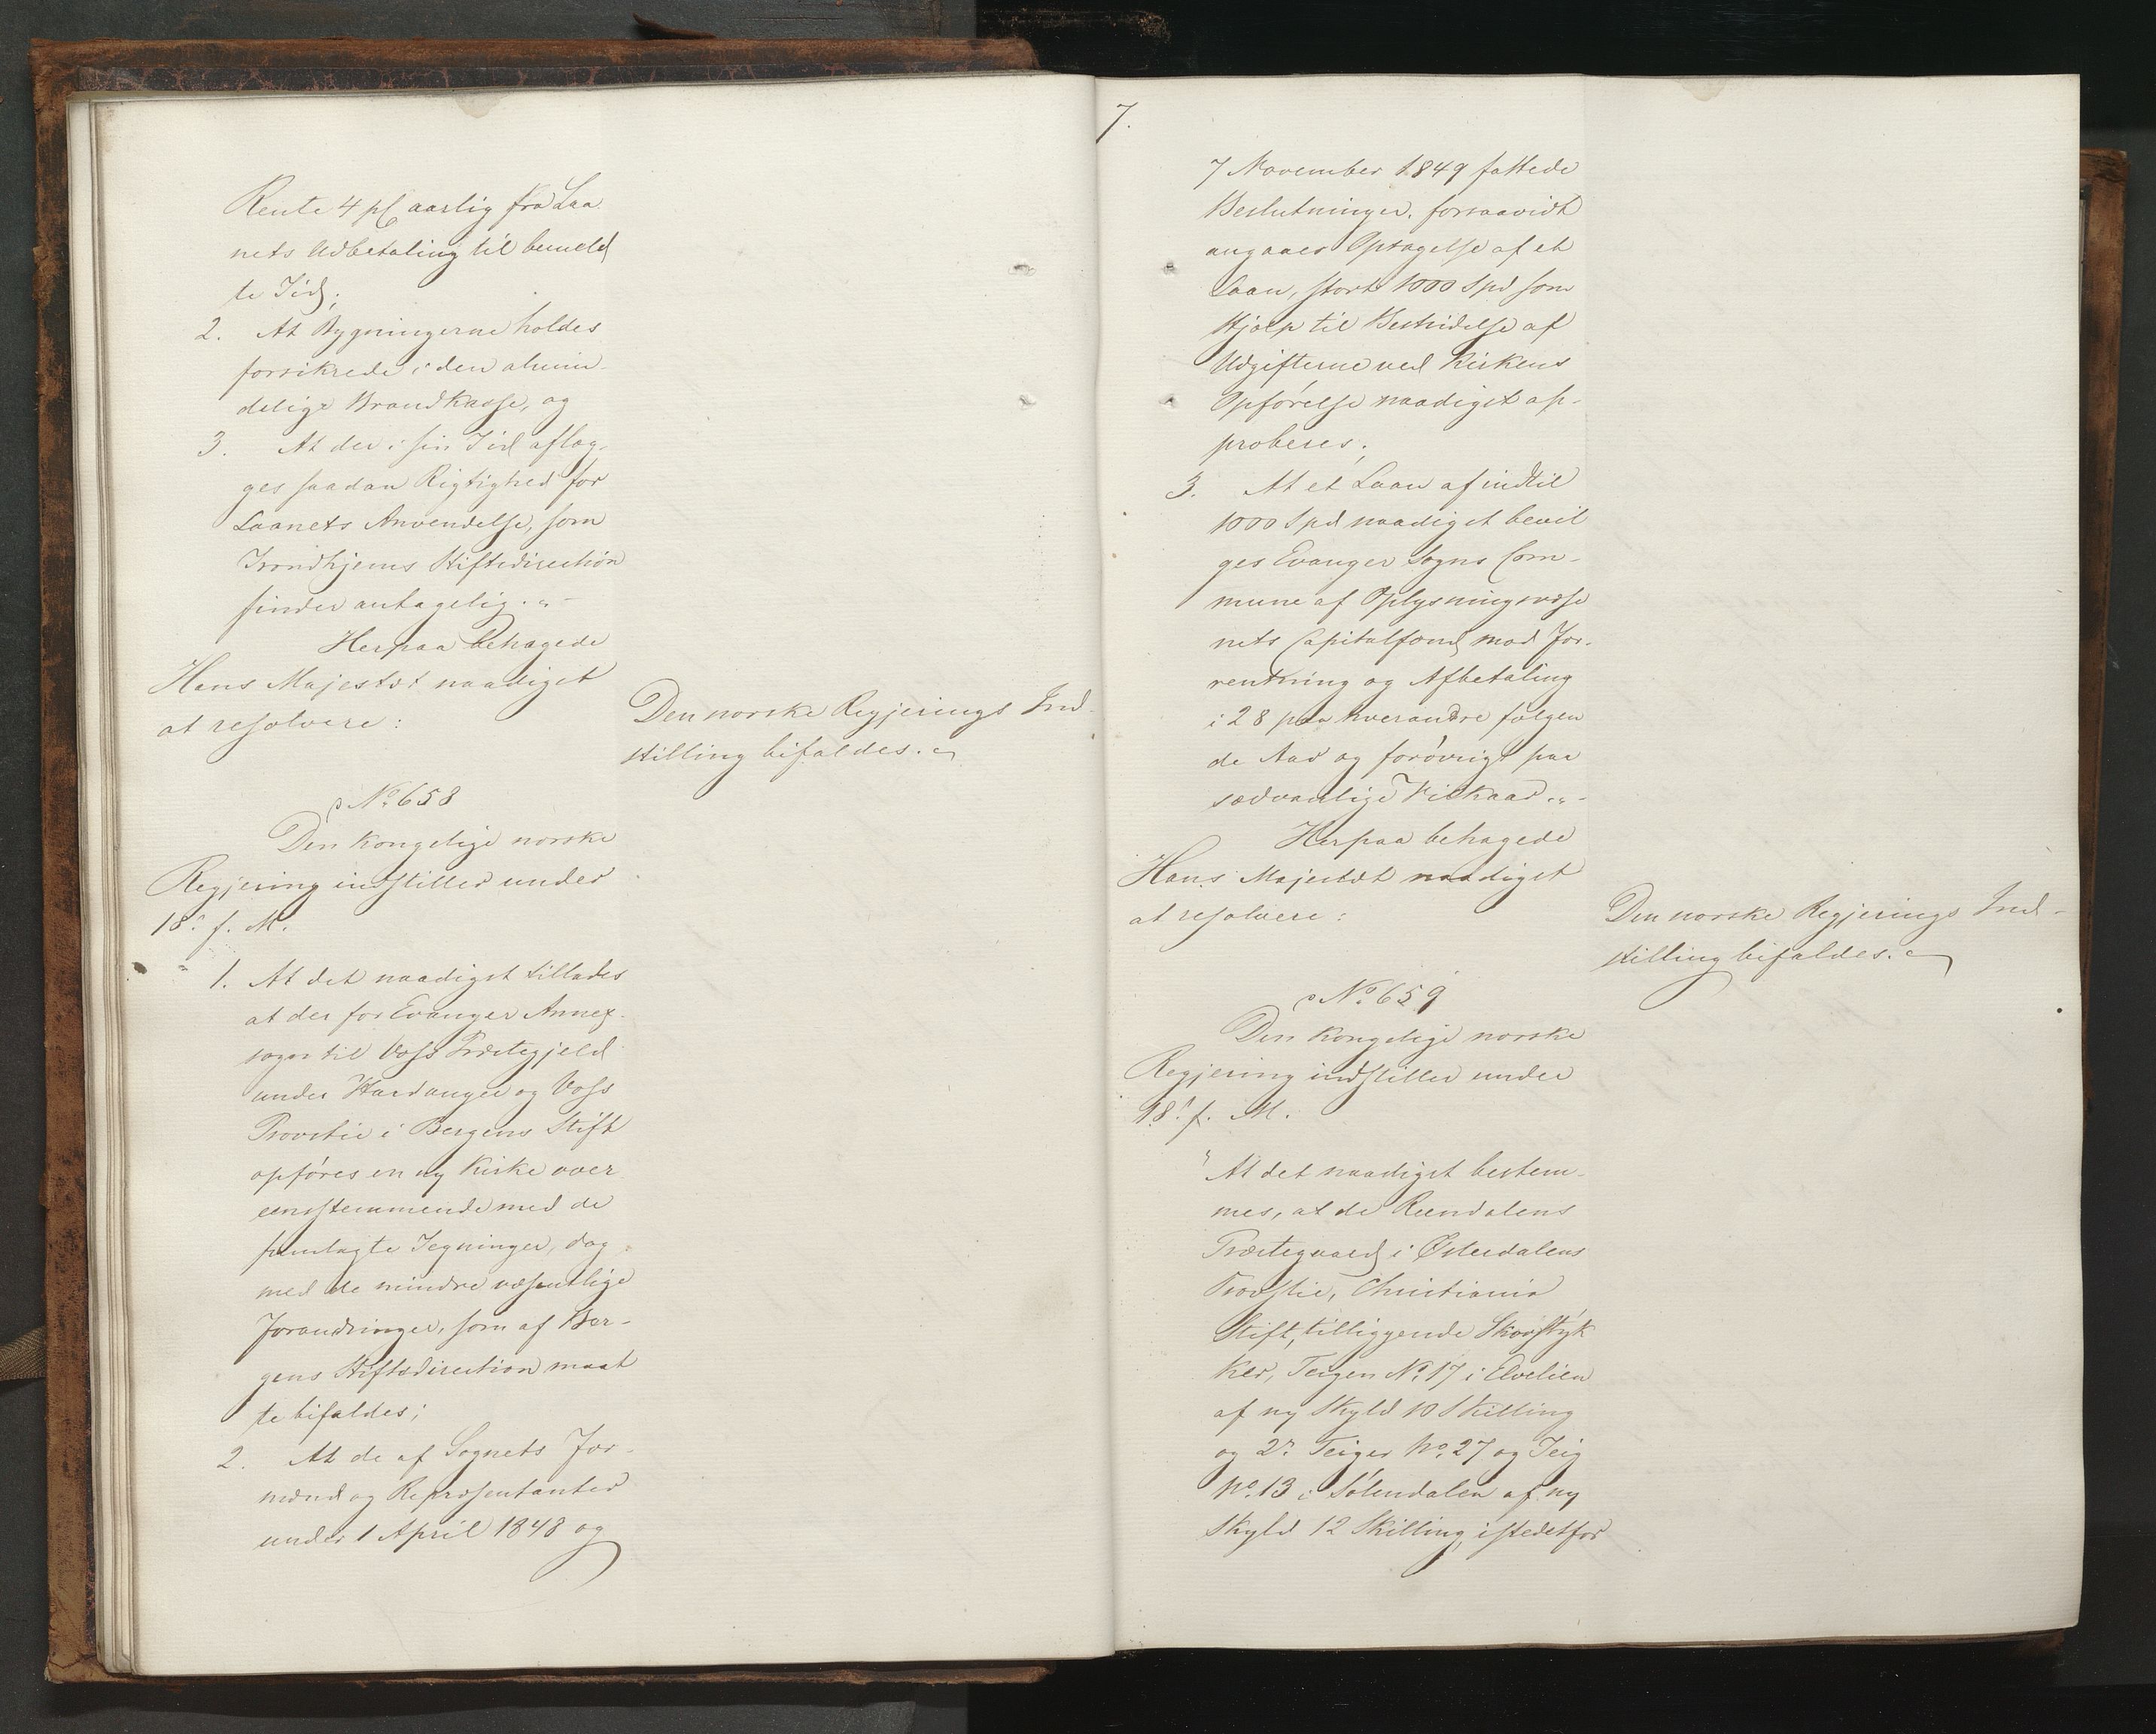 Rente 4 pC aarlig fra Laa
nets Udbetaling til bemeld
te Tid;
2. At Bygningerne holdes
forsikrede i den almin-
delige Brandkasse, og
3. At der i sin Tid aflæg-
ges saadan Rigtighed for
Laanets Anvendelse, som
Trondhjems Stiftsdirection
finder antagelig."-
Herpaa behagede
Hans Majestæt naadigst
at resolvere:
Den norske Regjerings Ind-
stilling bifaldes.
No. 658
Den kongelige norske
Regjering indstiller under
18. f. M.
" 1. At det naadigst tillades
at der for Evanger Annex-
sogn til Voss Præstegjeld
under Hardanger og Voss
Provstie i Bergens Stift
opføres en ny Kirke over
eensstemmende med de
fremlagte Tegninger, dog
med de mindre væsentlige
Forandringer, som af Ber-
gens Stiftsdirection maat
te bifaldes;
2. At de af Sognets For-
mænd og Repræsentanter
under 1 April 1848 og
7.
7 November 1849 fattede
Beslutninger, forsaavidt
angaaer Optagelse af et
Laan, stort 1000 Spd som
Hjælp til Bestridelse af
Udgifterne ved Kirkens
Opførelse naadigst ap-
proberes;
3. At et Laan af indtil
1000 Spd naadigst bevil
ges Evanger Sogns Com-
mune af Oplysningsvæse
nets Capitalfond mod For-
rentning og Afbetaling
i 28 paa hverandre følgen
de Aar og forøvrigt paa
sædvanlige Vilkaar."-
Herpaa behagede
Hans Majestæt naadigst
at resolvere:
Den norske Regjerings Ind-
stilling bifaldes.
No. 659
Den kongelige norske
Regjering indstiller under
18. f. M.
"At det naadigst bestem-
mes, at de Reendalens
Præstegaard i Østerdalens
Provstie, Christiania
Stift, tilliggende Skovstyk
ker, Teigen No. 17 i Elvelien
af ny Skyld 10 Skilling
og 2de Teiger No. 27 og Teig
No. 13 i Sølendalen af ny
Skyld 12 Skilling, istedetfor